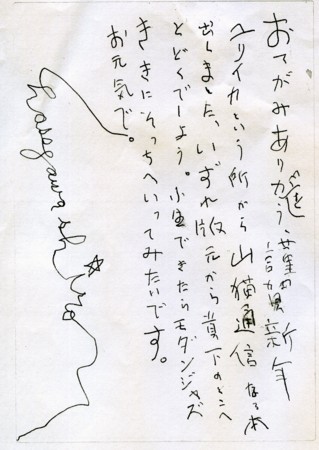 おてがみありがとう、新年
ユリイカという所から山猫通信なる本
出ました、いずれ版元から貴下のとこへ
とどくでしょう。小生できたらモダンジャズ
ききにそっちへいってみたいです。
お元気で。
hasegawa shiro